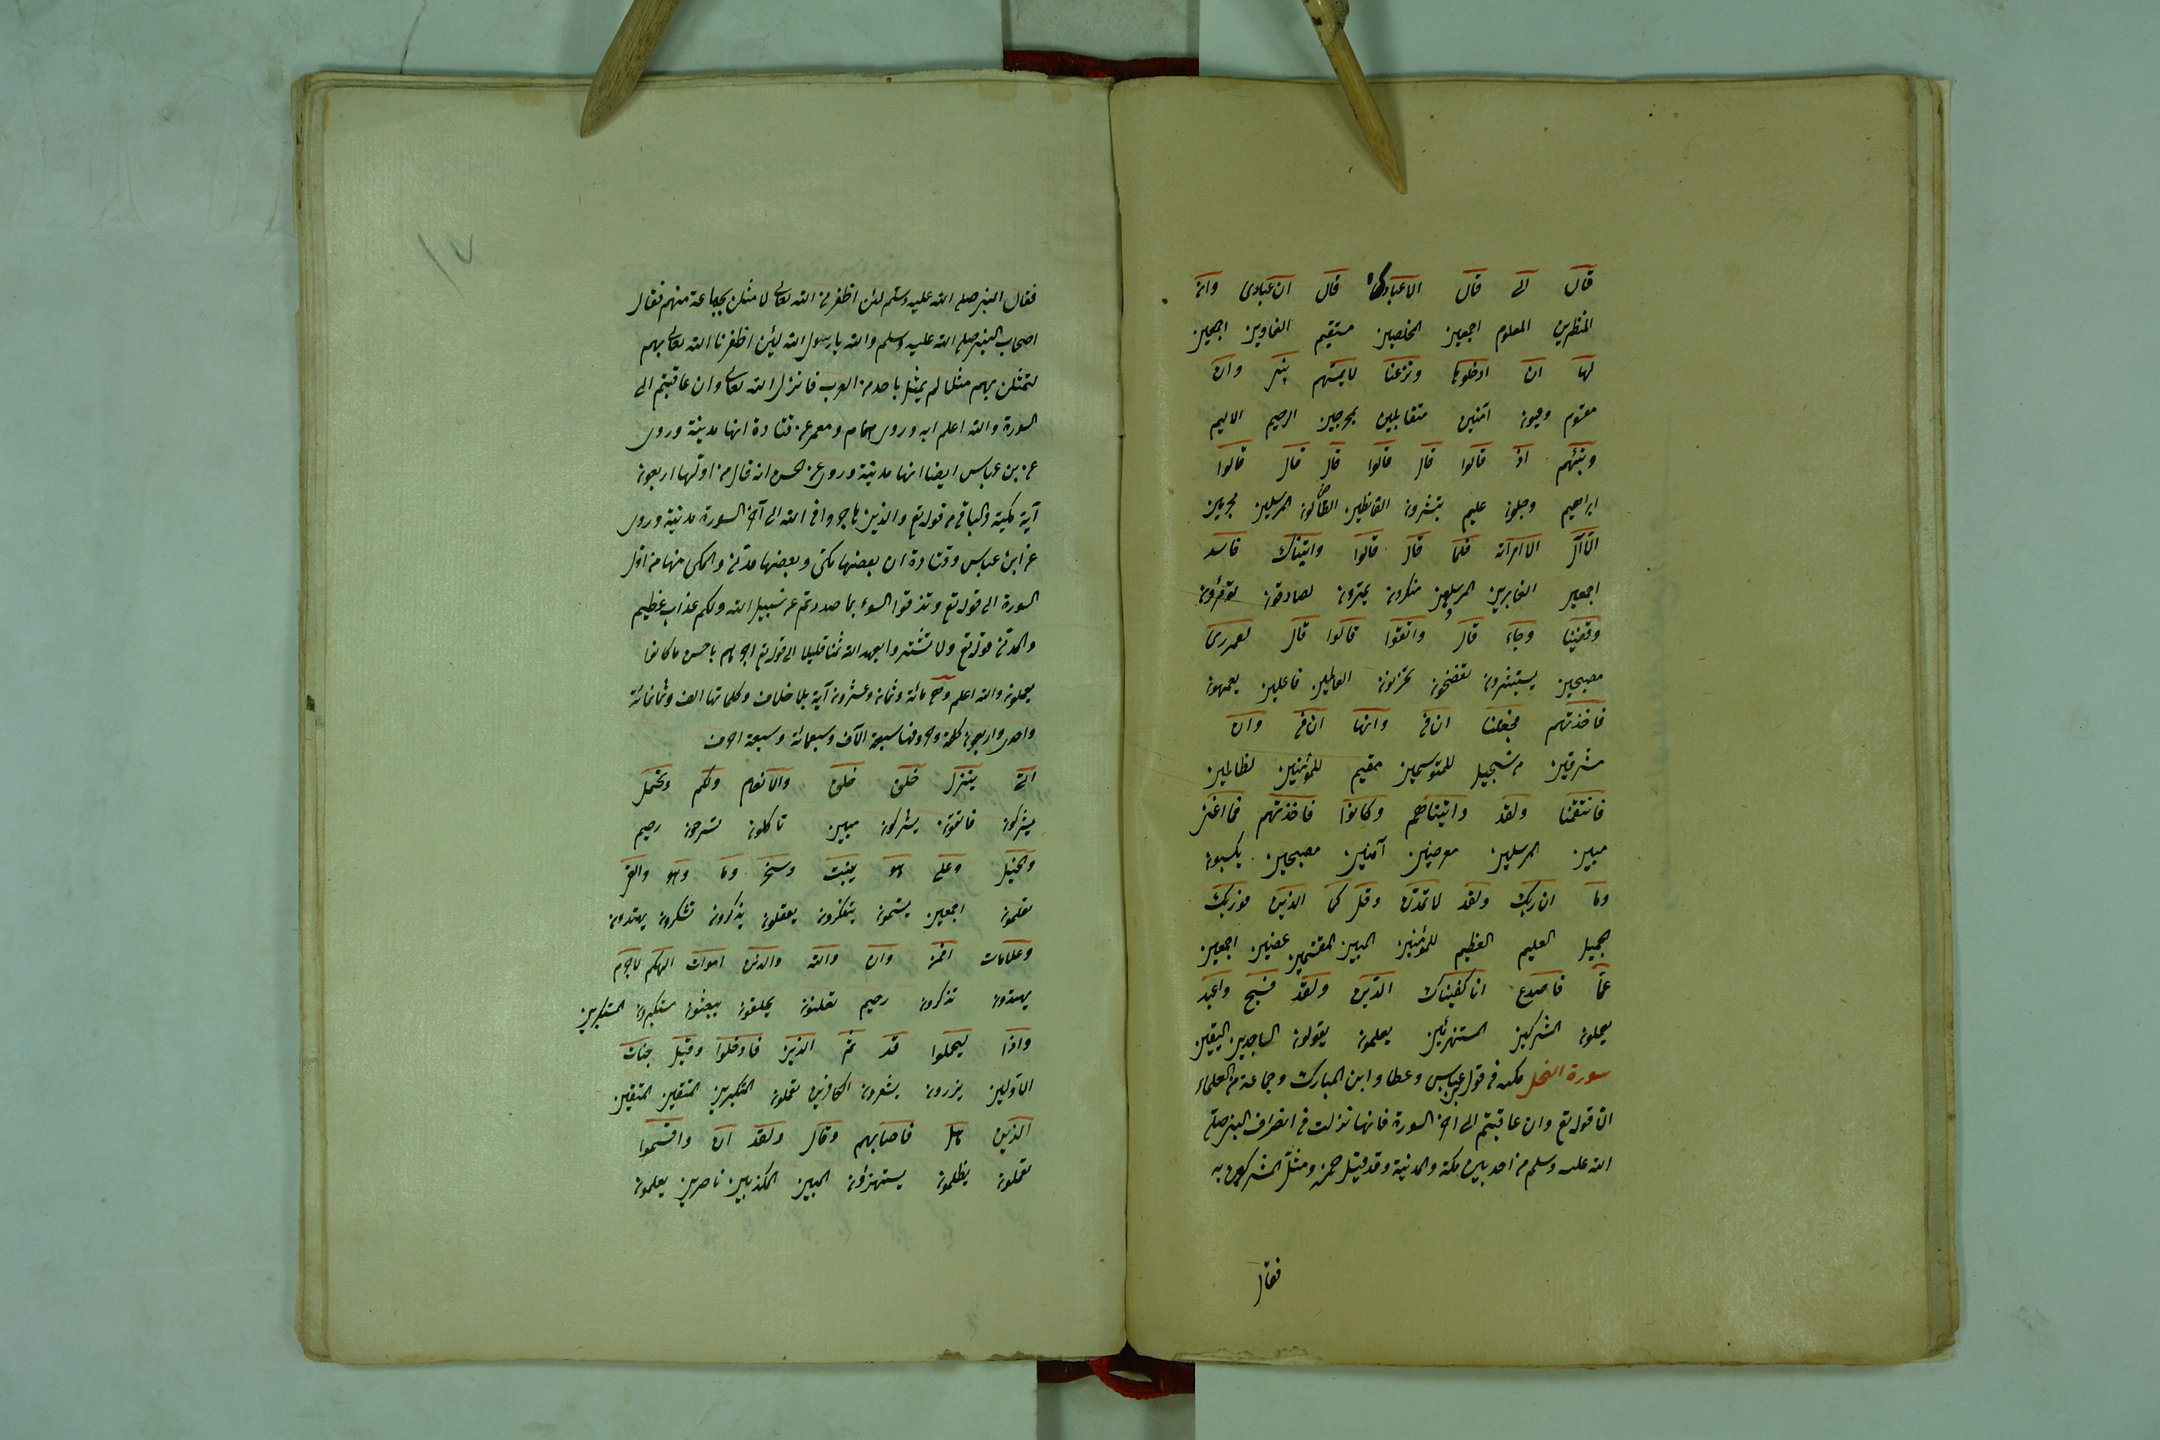 قال الى قال الا عبادك قال ان عبادى وان
المنظرين المعلوم اجمعين المخلصين مستقيم الغاوين اجمعين
لها ان ادخلوها ونزعنا لا يمسهم نبئ وان
مقسوم وعيون امنين متقابلين بمخرجين الرحيم الاليم
ونبئهم اذ قالوا قال قالوا قال قال قالوا
ابراهيم وجلون عليم تبشرون القانطين الضالون المرسلون مجرمين
الا آل الا امراته فلما قال قالوا واتيناك فاسر
اجمعين الغابرين المرسلون منكرون يمترون لصادقون تؤمرون
وقضينا وجاء قال واتقوا قالوا قال لعمرك
مصبحين يستبشرون تفضحون تخزون العالمين فاعلين يعمهون
فاخذتهم فجعلنا ان فى وانها ان فى وان
مشرقين من سجيل للمتوسمين مقيم للمؤمنين لظالمين
فانتقمنا ولقد واتيناهم وكانوا فاخذتهم فما اغنى
مبين المرسلين معرضين آمنين مصبحين يكسبون
وما ان ربك ولقد لا تمدن وقل كما الذين فوربك
الجميل العليم العظيم للمؤمنين المبين المقتسمين عضين اجمعين
عما فاصدع انا كفيناك الذين ولقد فسبح واعبد
يعملون المشركين المستهزئين يعلمون يقولون الساجدين اليقين
سورة النحل مكيه فى قول عباس وعطا وابن المبارك وجماعة من العلماء
الا قوله تع وان عاقبتم الى آخر السورة فانها نزلت فى انصراف النبى صلى
الله عليه وسلم من احد بين مكة والمدينة وقد قتل حمزه ومثل المشركون به
فقال
فقال النبى صلى الله عليه وسلم لئن اظفرنى الله تعالى لامثلن بجماعة منهم فقال
اصحاب النبى صلى الله عليه وسلم والله يا رسول الله لئن اظفرنا الله تعالى بهم
لنمثلن بهم مثلا لم يمثل باحد من العرب فانزل الله تعالى وان عاقبتم الى
السورة والله اعلم به وروى همام ومعمر عن قتادة انها مدينة وروى
عن بن عباس ايضا انها مدينة وروى عن الحسن انه قال من اولها اربعون
آية مكية والباقى من قوله تع والذين هاجروا فى الله الى آخر السورة مدنية وروى
عن ابن عباس وقتادة ان بعضها مكى وبعضها مدنى والمكى منها من اول
السورة الى قوله تع وتذوقوا السوء بما صددتم عن سبيل الله ولكم عذاب عظيم
والمدنى قوله تع ولا تشتروا بعهد الله ثمنا قليلا الى قوله تع اجرهم باحسن ما كانوا
يعملون والله اعلم وهى مائة وثمان وعشرون آية بلا خلاف وكلماتها الف وثمانمائة
واحدى واربعون كلمة وحروفها سبعة الآف وسبعمائة وسبعة احرف
اتى ينزل خلق خلق والانعام ولكم وتحمل
يشركون فاتقون يشركون مبين تاكلون تسرحون رحيم
والخيل وعلى هو ينبت وسخر وما وهو والقى
تعلمون اجمعين يسيمون يتفكرون يعقلون يذكرون تشكرون يهتدون
وعلامات افمن وان والله والذين اموات الهكم لا جرم
يهتدون تذكرون رحيم تعلنون يخلقون يبعثون مستكبرون المستكبرين
واذا ليحملوا قد ثم الذين فادخلوا وقيل جنات
الاولين يزرون يشعرون الكافرين تعملون المتكبرين المتقين المتقين
الذين هل فاصابهم وقال ولقد ان واقسموا
تعملون يظلمون يستهزؤن المبين المكذبين ناصرين يعلمون